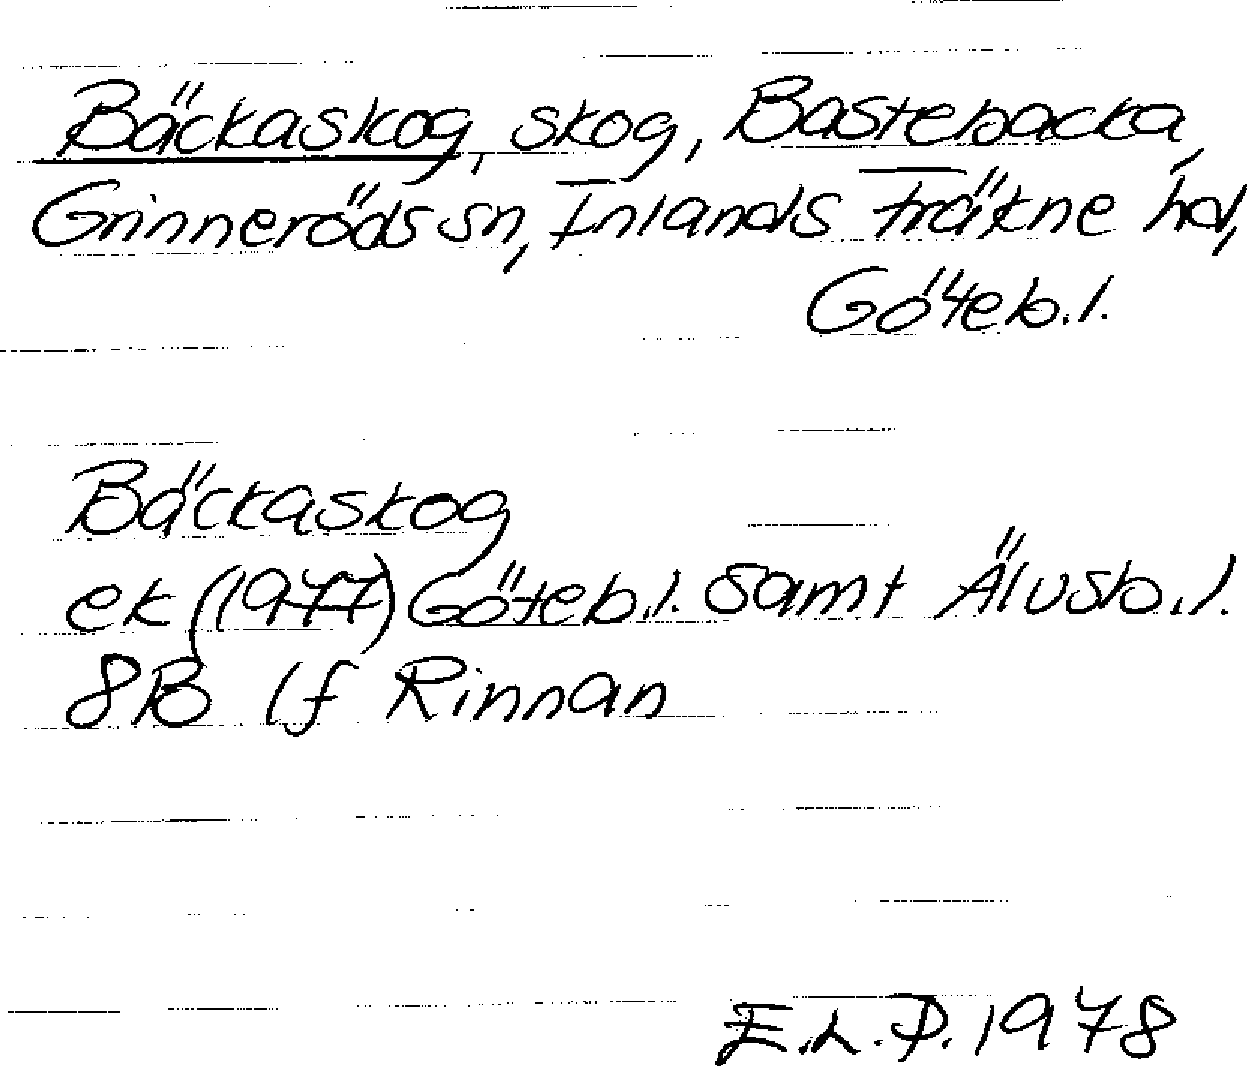 Bäckaskog, skog, Bastebacka,
Grinneröds sn, Inlands Fräkne hd,
Göteb.l.
Bäckaskog
ek (1977) Göteb.l. samt Älvsb.l.
8B 1f Rinnan
E.L.P. 1978